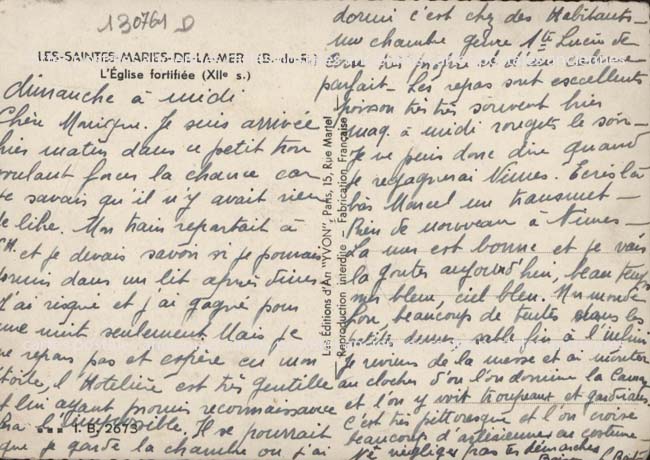 130761 D
LES-SAINTES-MARIES-DE-LA-MER (B.-du-R.)
L'Église fortifiée (XIIe s.)
dimanche à midi
Chère Monique. Je suis arrivée
hier matin dans ce petit trou
voulant forcer la chance car
je savais qu'il n'y avait rien
de libre. Mon train repartait à
et je devais savoir si je pouvais
dans un lit après diner
J'ai risqué et j'ai gagné pour
une nuit seulement Mais je
ne repars pas et espère en mon
étoile, l'Hotelière est très gentille
et lui ayant promis reconnaissance
l'impossible. Il se pourrait
que je garde la chambre où j'ai
1. B. 2673
Les Éditions d'Art "YVON", Paris, 15, Rue Martel
Reproduction interdite - Fabrication Française
dormi c'est chez des Habitants -
une chambre genre
très propre
parfait - Les repas sont excellents
poisson très très souvent hier
maq. à midi rougets le soir -
Je ne peux donc dire quand
je regagnerai Nimes. Ecris là
bas Marcel me transmet -
Rien de nouveau à Nimes -
La mer est bonne et je vais
la gouter aujourd'hui, beau temps
mer bleue, ciel bleu. Un monde
fou beaucoup de tentes dans les
sable fin à l'infini
Je reviens de la messe et ai monter
au clocher d'où l'on domine la Camar
et l'on y voit troupeaux et gardians.
C'est très pittoresque et l'on croise
beaucoup d'arlésiennes en costume -
Ne négliger pas tes démarches